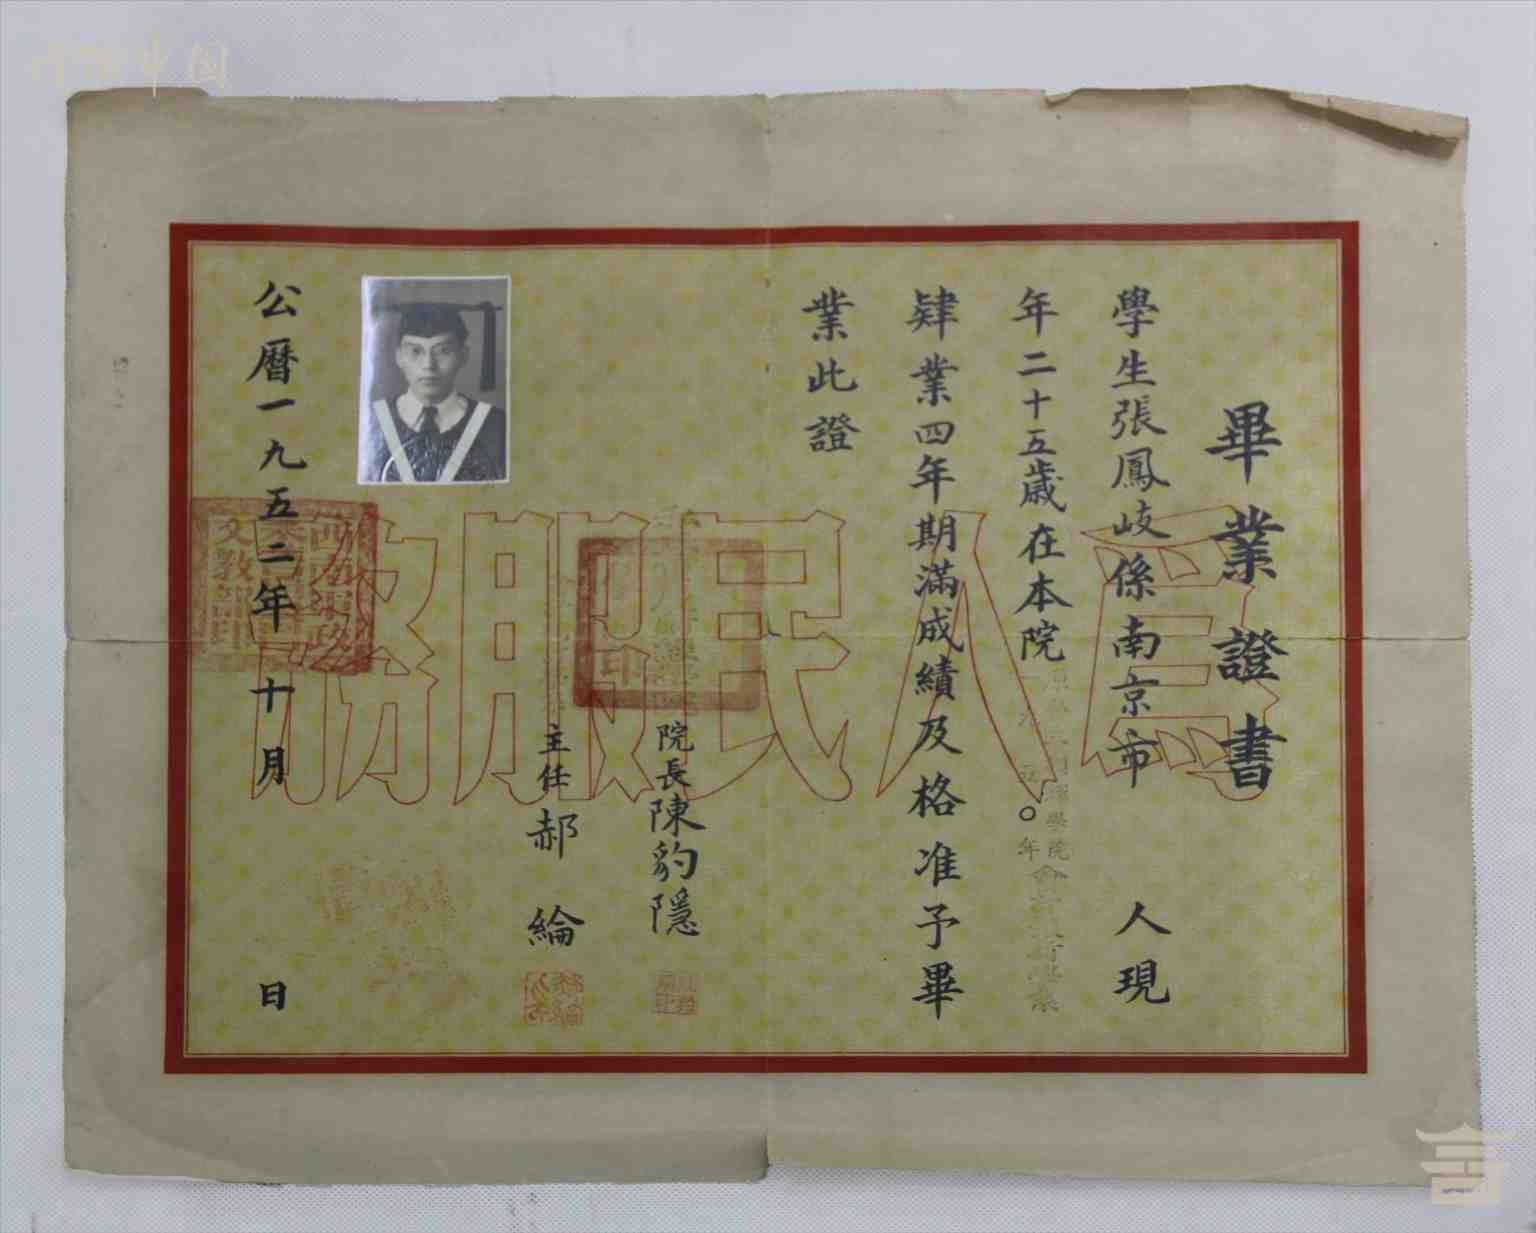 畢業證書
學生張鳳岐係南京市 人現
年二十五歲在本院
學院
年
肄業四年期滿成績及格准予畢
業此證
院長陳豹隱
主任郝 綸
公曆一九五二年 十月 日
為人民服務
文教部印
印
中国